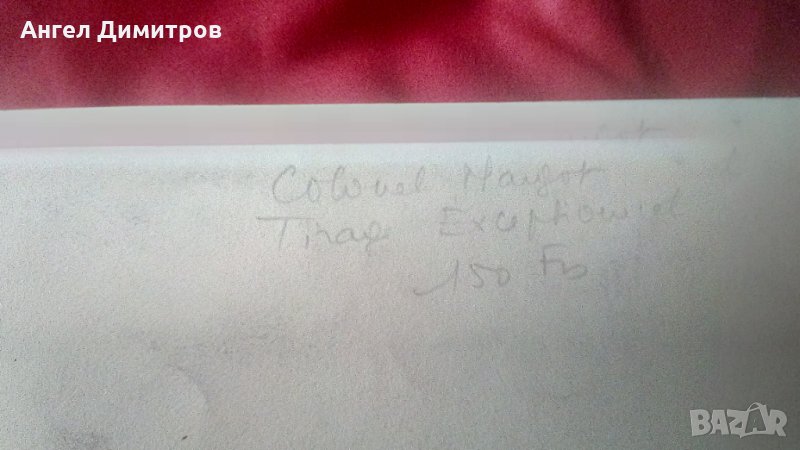 Ангел Димитров
Colonel
Tirage Exceptionnel
150 Frs
BAZAR